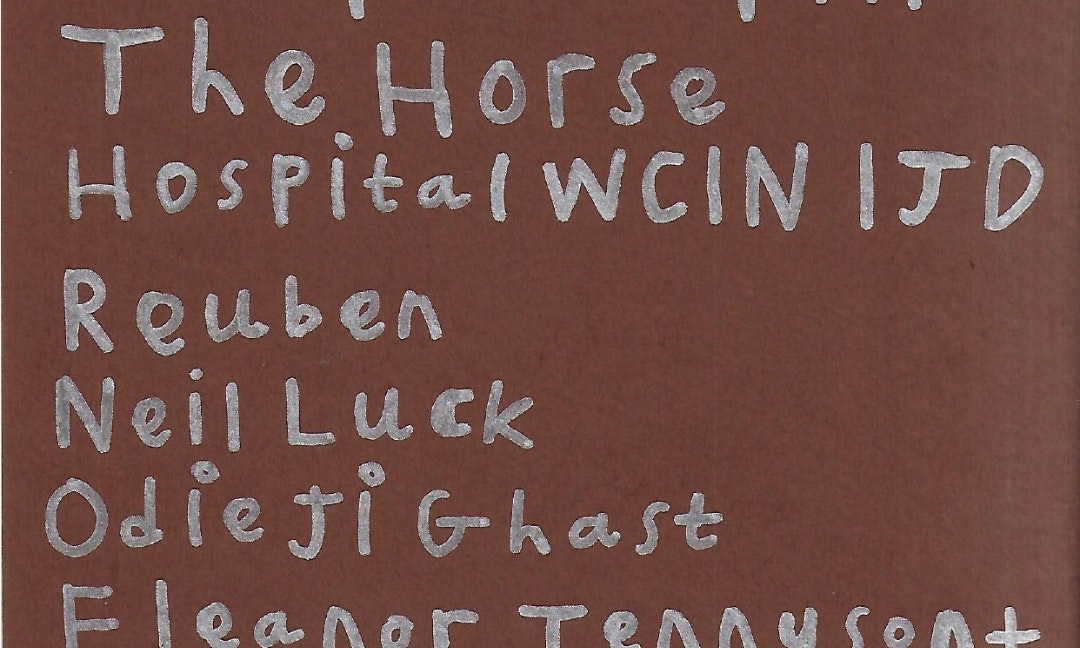 The Horse
Hospital WC1N 1JD
Reuben
Neil Luck
Odie Ji Ghast
Eleanor Tennyson +